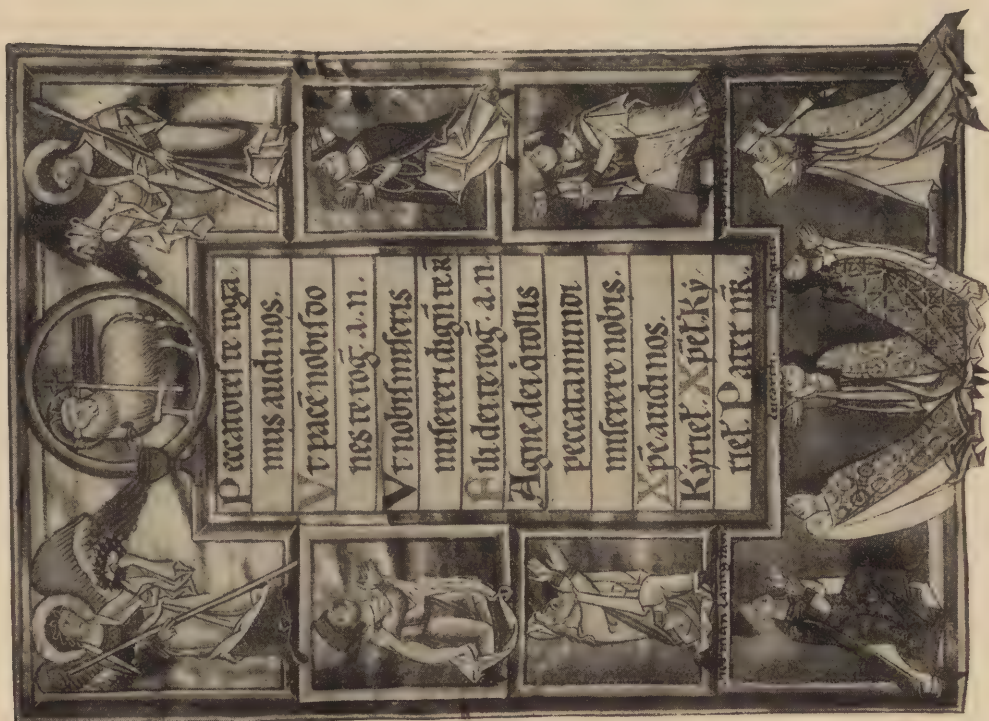 Peccatores te roga
mus audi nos.
Vt pacē nobis do
nes te rog̅. a. n.
Vt nobis miseris
misereri dign̅ te R̅
Fili dei te rog̅. a. n.
Agne dei q tollis
peccata mundi
miserere nobis.
Xp̅e audi nos.
Kyriel' Xp̅el' Ky
riel' Pater nr̅.